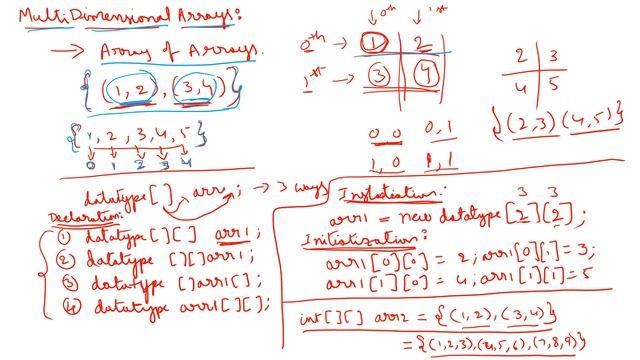 MultiDimensional Arrays:
→ Array of Arrays.
{(1, 2), (3, 4)}
{1, 2, 3, 4, 5}
0 1 2 3 4
0th 1st
0th → 1 2
1st → 3 4
0 0 0,1
1,0 1,1
2 3
4 5
{(2,3)(4,5)}
datatype[] arr; → 3 ways
Declaration:
① datatype[][] arr1;
② datatype [][]arr1;
③ datatype []arr1[];
④ datatype arr1[][];
Instatiation:
3 3
arr1 = new datatype[2][2];
Initialization:
arr1[0][0] = 2; arr1[0][1] = 3;
arr1[1][0] = 4; arr1[1][1] = 5
int[][] arr2 = {(1,2), (3,4)}
= {(1,2,3),(4,5,6),(7,8,9)}